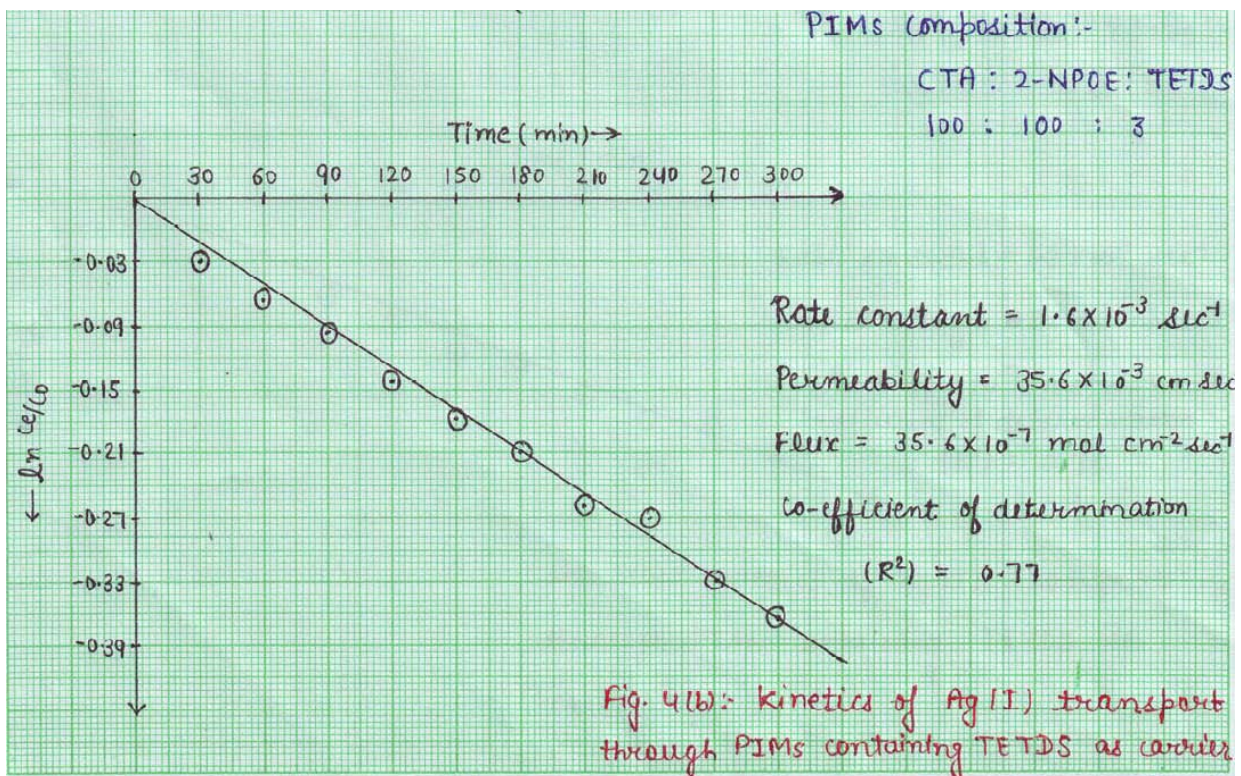 PIMs composition:-
CTA : 2-NPOE : TETDS
100 : 100 : 3
Time (min) →
0 30 60 90 120 150 180 210 240 270 300
-0.03
-0.09
-0.15
-0.21
-0.27
-0.33
-0.39
← ln Ce/Co
Rate constant = 1.6×10⁻³ sec⁻¹
Permeability = 35.6×10⁻³ cm sec
Flux = 35.6×10⁻⁷ mol cm⁻² sec⁻¹
Co-efficient of determination
(R²) = 0.77
Fig. 4(b):- Kinetics of Ag(I) transport
through PIMs containing TETDS as carrier